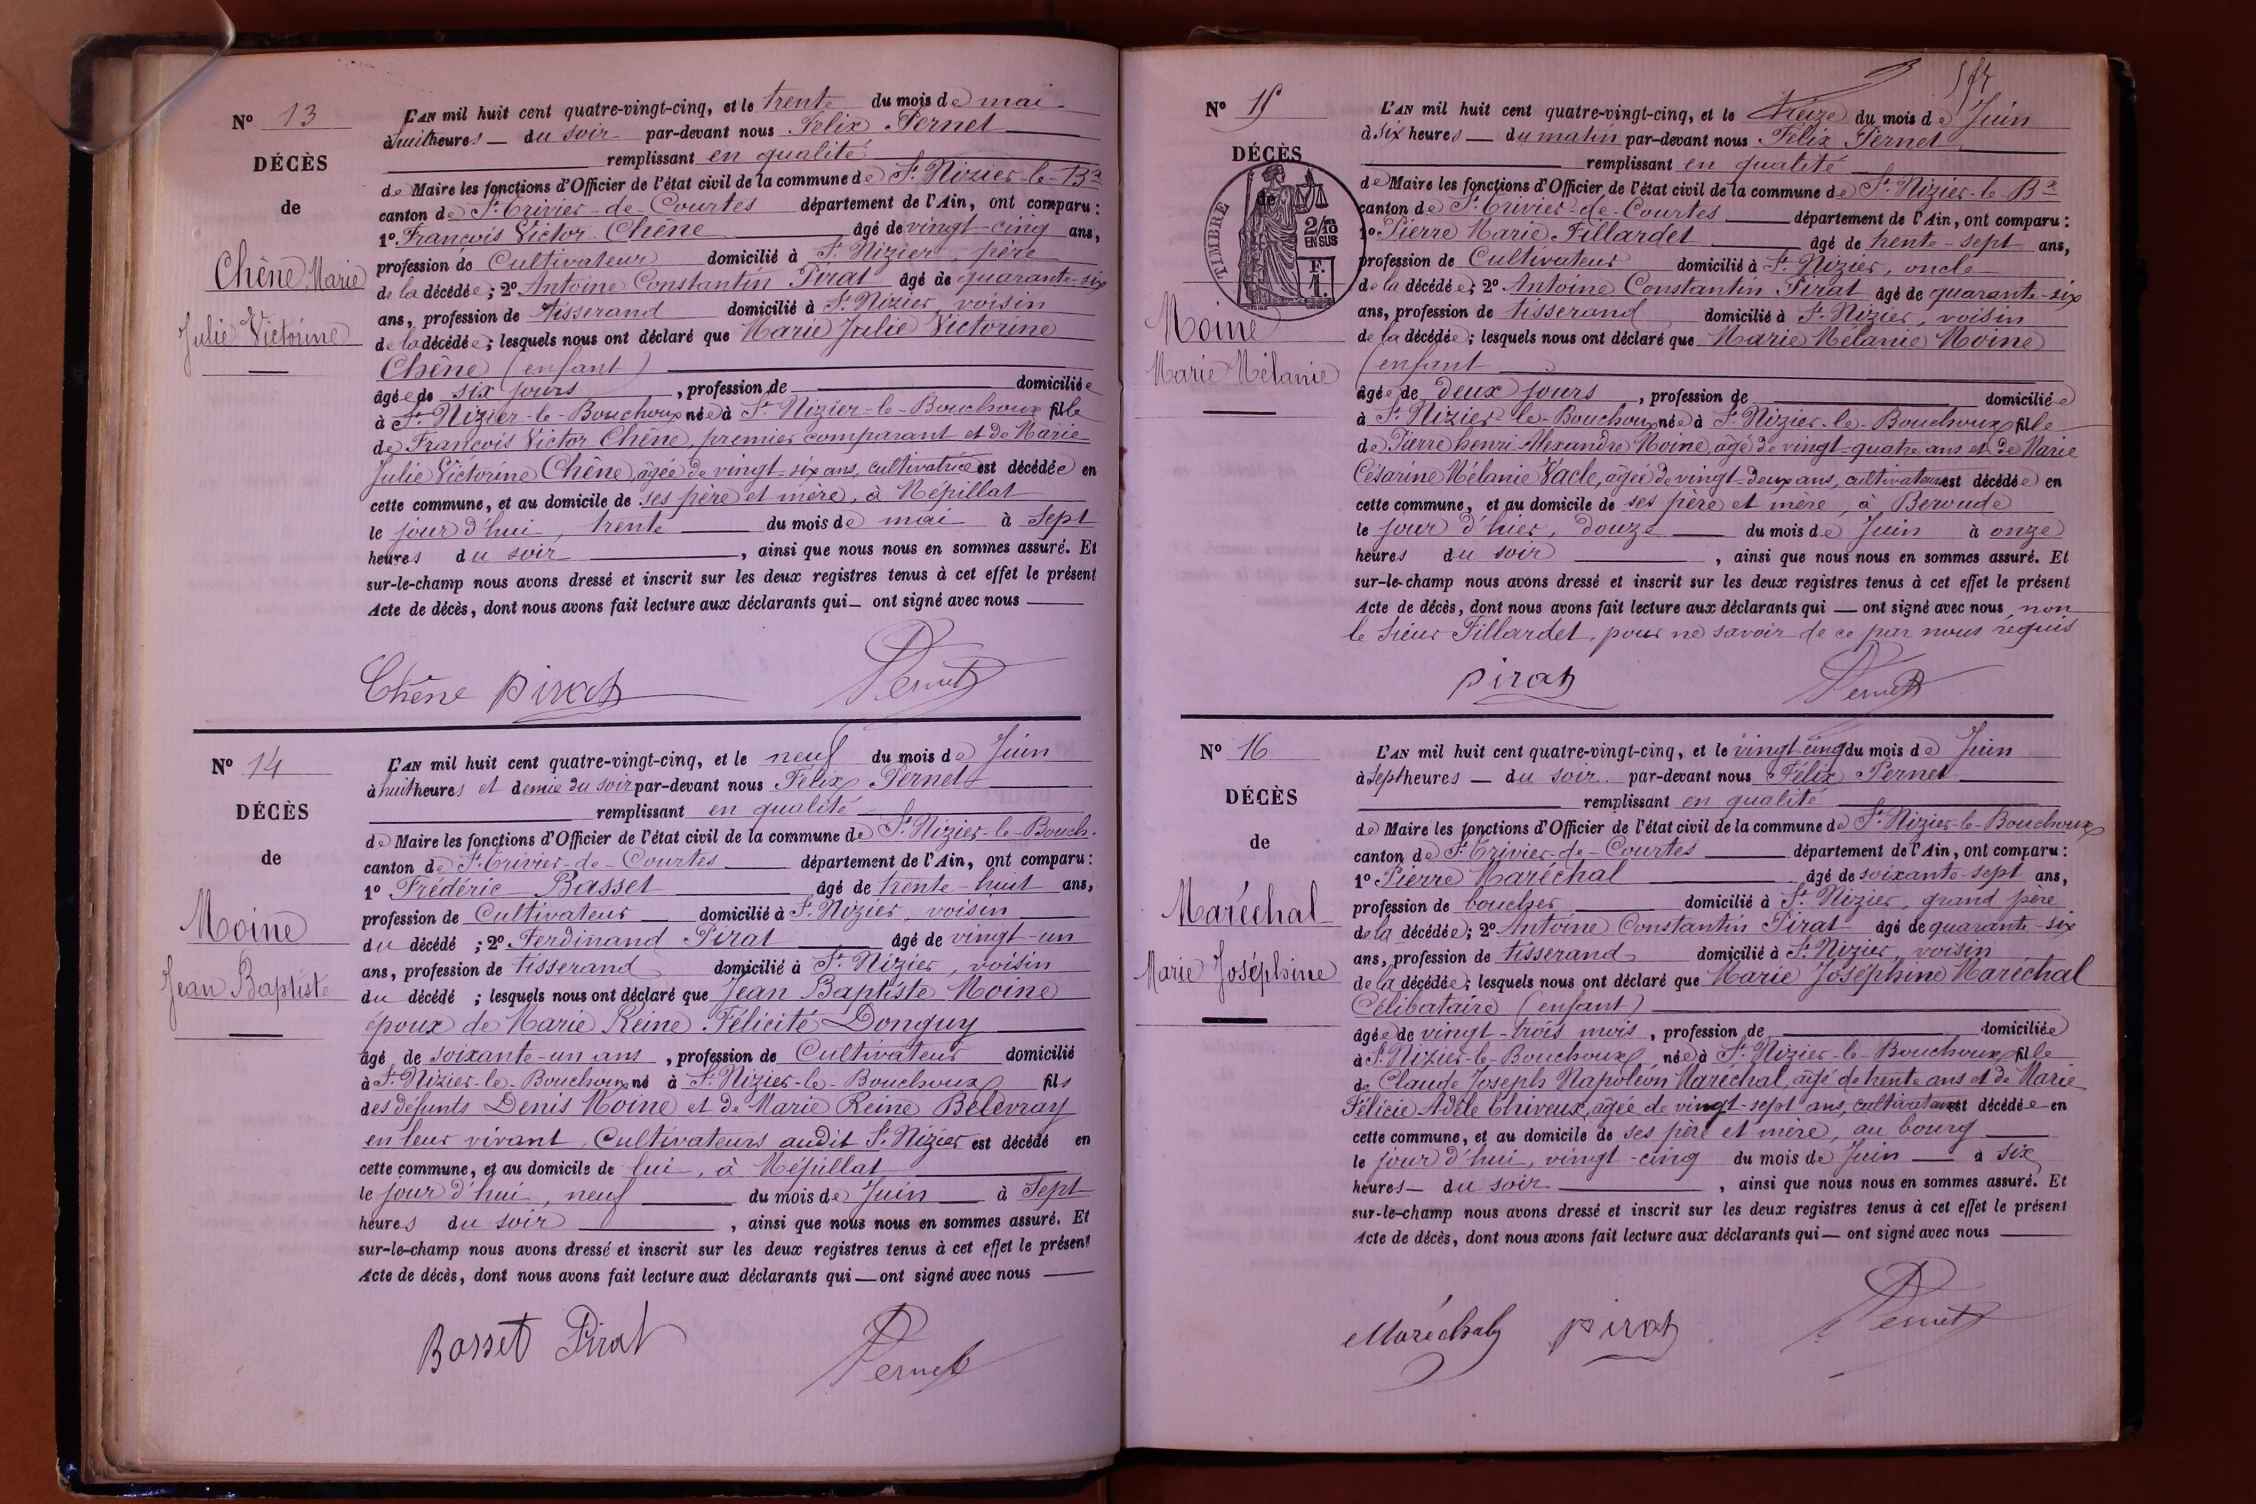 N° 13
DÉCÈS
de
Chêne Marie
Julie Victorine
L'AN mil huit cent quatre-vingt-cinq, et le trente du mois de mai
à huit heures du soir par-devant nous Félix Pernet
remplissant en qualité
de Maire les fonctions d'Officier de l'état civil de la commune de St Nizier-le-Bx
canton de St Trivier-de-Courtes département de l'Ain, ont comparu :
1° François Victor Chêne âgé de vingt-cinq ans,
profession de Cultivateur domicilié à St Nizier, père
de la décédée ; 2° Antoine Constantin Pirat âgé de quarante-six
ans, profession de tisserand domicilié à St Nizier, voisin
de la décédée ; lesquels nous ont déclaré que Marie Julie Victorine
Chêne (enfant)
âgée de six jours , profession de domiciliée
à St Nizier-le-Bouchoux née à St Nizier-le-Bouchoux fille
de François Victor Chêne, premier comparant et de Marie
Julie Victorine Chêne, âgée de vingt-six ans, cultivatrice est décédée en
cette commune, et au domicile de ses père et mère, à Népillat
le jour d'hui, trente du mois de mai à sept
heures du soir , ainsi que nous nous en sommes assuré. Et
sur-le-champ nous avons dressé et inscrit sur les deux registres tenus à cet effet le présent
Acte de décès, dont nous avons fait lecture aux déclarants qui ont signé avec nous
Chêne Pirat Pernet
N° 14
DÉCÈS
de
Moine
Jean Baptiste
L'AN mil huit cent quatre-vingt-cinq, et le neuf du mois de Juin
à huit heures et demie du soir par-devant nous Félix Pernet
remplissant en qualité
de Maire les fonctions d'Officier de l'état civil de la commune de St Nizier-le-Bouch.
canton de St Trivier-de-Courtes département de l'Ain, ont comparu :
1° Frédéric Basset âgé de trente-huit ans,
profession de Cultivateur domicilié à St Nizier, voisin
du décédé ; 2° Ferdinand Pirat âgé de vingt-un
ans, profession de tisserand domicilié à St Nizier, voisin
du décédé ; lesquels nous ont déclaré que Jean Baptiste Moine
époux de Marie Reine Félicité Donguy
âgé de soixante-un ans , profession de Cultivateur domicilié
à St Nizier-le-Bouchoux né à St Nizier-le-Bouchoux fils
des défunts Denis Moine et de Marie Reine Bélévray
en leur vivant, Cultivateurs audit St Nizier est décédé en
cette commune, et au domicile de lui, à Népillat
le jour d'hui, neuf du mois de Juin à sept
heures du soir , ainsi que nous nous en sommes assuré. Et
sur-le-champ nous avons dressé et inscrit sur les deux registres tenus à cet effet le présent
Acte de décès, dont nous avons fait lecture aux déclarants qui ont signé avec nous
Basset Pirat Pernet
N° 15
DÉCÈS
de
TIMBRE
2/10
EN SUS
F.
1.
Moine
Marie Mélanie
L'AN mil huit cent quatre-vingt-cinq, et le treize du mois de Juin
à six heures du matin par-devant nous Félix Pernet
remplissant en qualité
de Maire les fonctions d'Officier de l'état civil de la commune de St Nizier-le-Bx
canton de St Trivier-de-Courtes département de l'Ain, ont comparu :
1° Pierre Marie Fillardet âgé de trente-sept ans,
profession de Cultivateur domicilié à St Nizier, oncle
de la décédée ; 2° Antoine Constantin Pirat âgé de quarante-six
ans, profession de tisserand domicilié à St Nizier, voisin
de la décédée ; lesquels nous ont déclaré que Marie Mélanie Moine
(enfant
âgée de deux jours , profession de domiciliée
à St Nizier-le-Bouchoux née à St Nizier-le-Bouchoux fille
de Pierre henri Alexandre Moine, âgé de vingt-quatre ans et de Marie
Césarine Mélanie Vacle, âgée de vingt-deux ans, cultivateurs est décédée en
cette commune, et au domicile de ses père et mère, à Beroude
le jour d'hier, douze du mois de Juin à onze
heures du soir , ainsi que nous nous en sommes assuré. Et
sur-le-champ nous avons dressé et inscrit sur les deux registres tenus à cet effet le présent
Acte de décès, dont nous avons fait lecture aux déclarants qui ont signé avec nous, non
le sieur Fillardet, pour ne savoir de ce par nous requis
Pirat Pernet
N° 16
DÉCÈS
de
Maréchal
Marie Joséphine
L'AN mil huit cent quatre-vingt-cinq, et le vingt-cinq du mois de Juin
à sept heures du soir par-devant nous Félix Pernet
remplissant en qualité
de Maire les fonctions d'Officier de l'état civil de la commune de St Nizier-le-Bouchoux
canton de St Trivier-de-Courtes département de l'Ain, ont comparu :
1° Pierre Maréchal âgé de soixante-sept ans,
profession de boucher domicilié à St Nizier, grand père
de la décédée ; 2° Antoine Constantin Pirat âgé de quarante-six
ans, profession de tisserand domicilié à St Nizier, voisin
de la décédée ; lesquels nous ont déclaré que Marie Joséphine Maréchal
Célibataire (enfant)
âgée de vingt-trois mois , profession de domiciliée
à St Nizier-le-Bouchoux née à St Nizier-le-Bouchoux fille
de Claude Joseph Napoléon Maréchal, âgé de trente ans et de Marie
Félicie Adèle Chiveux, âgée de vingt-sept ans, cultivateurs est décédée en
cette commune, et au domicile de ses père et mère, au bourg
le jour d'hui, vingt-cinq du mois de Juin à six
heures du soir , ainsi que nous nous en sommes assuré. Et
sur-le-champ nous avons dressé et inscrit sur les deux registres tenus à cet effet le présent
Acte de décès, dont nous avons fait lecture aux déclarants qui ont signé avec nous
Maréchal Pirat Pernet